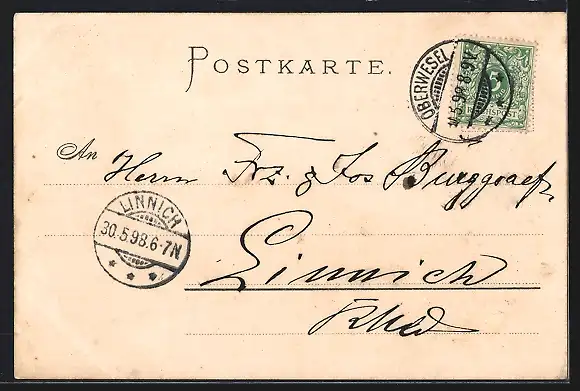 POSTKARTE.
OBERWESEL
5.98.8-9V
5
REICHSPOST
An Herrn Frz. & Jos Burggraef,
LINNICH
30.5.98.6-7N
Linnich
Rhld